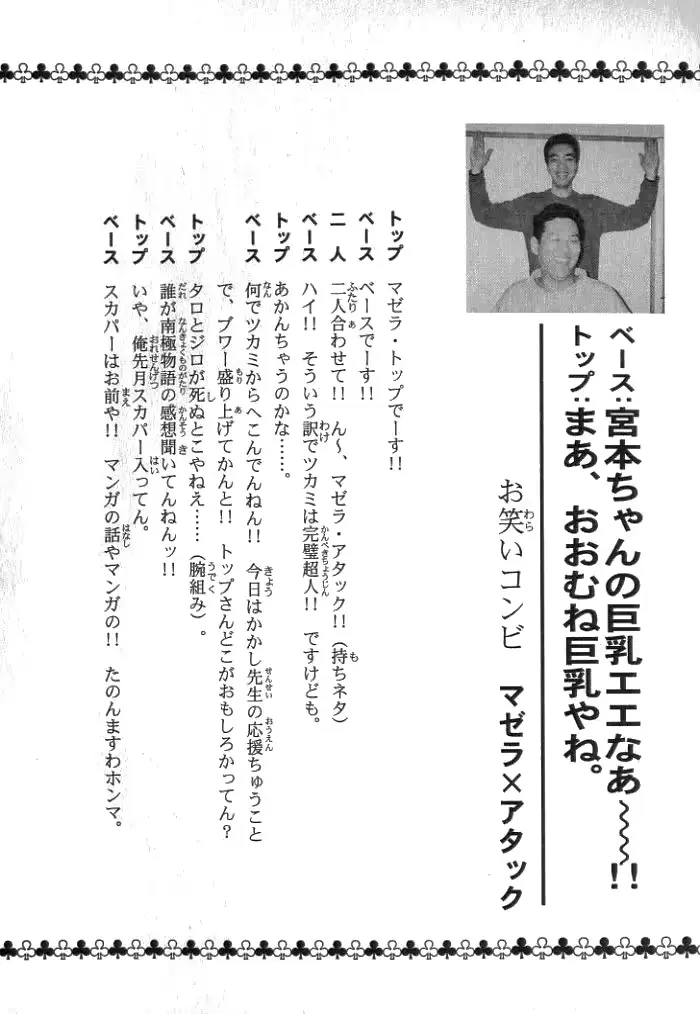 ベース:宮本ちゃんの巨乳エエなぁ〜〜〜!!
トップ:まあ、おおむね巨乳やね。
お笑いコンビ マゼラ×アタック
トップ マゼラ・トップでーす!!
ベース ベースでーす!!
二人 二人合わせて!! ん〜、マゼラ・アタック!!(持ちネタ)
ベース ハイ!! そういう訳でツカミは完璧超人!! ですけども。
トップ あかんちゃうのかな……。
ベース 何でツカミからへこんでんねん!! 今日はかかし先生の応援ちゅうこと
で、ブワー盛り上げてかんと!! トップさんどこがおもしろかってん?
トップ タロとジロが死ぬとこやねえ……(腕組み)。
ベース 誰が南極物語の感想聞いてんねんッ!!
トップ いや、俺先月スカパー入ってん。
ベース スカパーはお前や!! マンガの話やマンガの!! たのんますわホンマ。